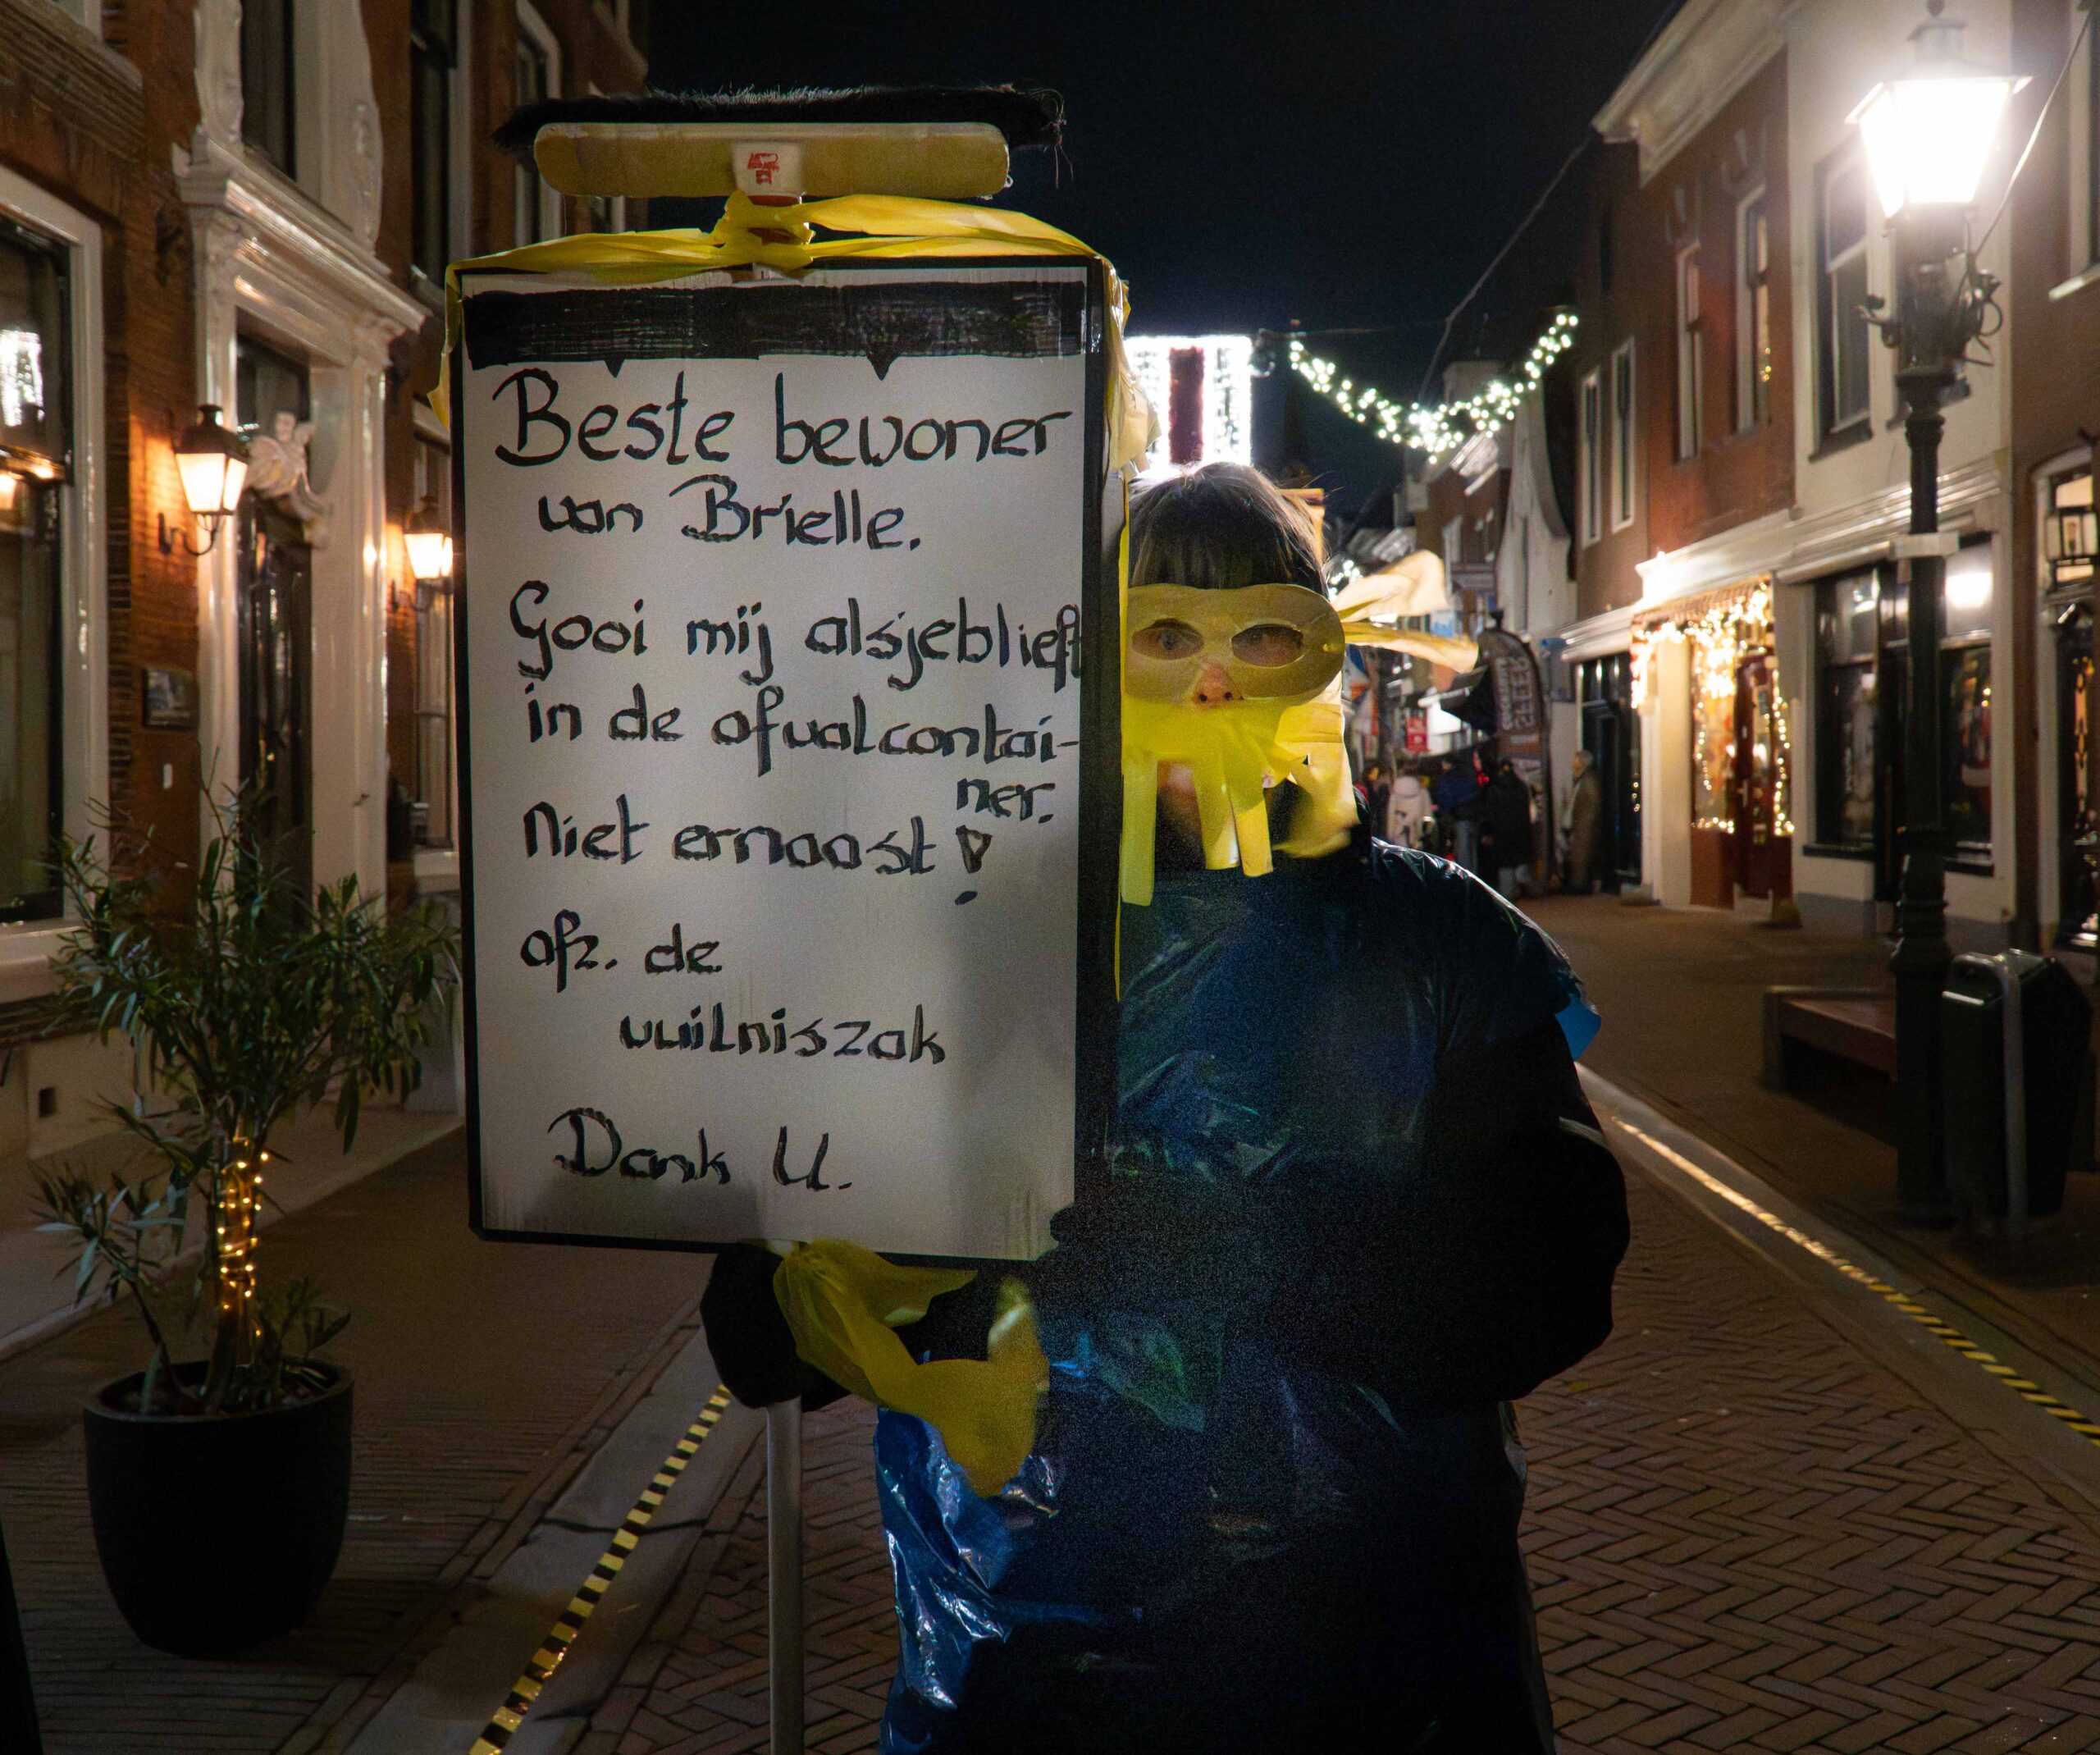 Beste bewoner
van Brielle.
Gooi mij alsjeblieft
in de afvalcontai-
ner.
Niet ernaast!
afz. de
vuilniszak
Dank U.